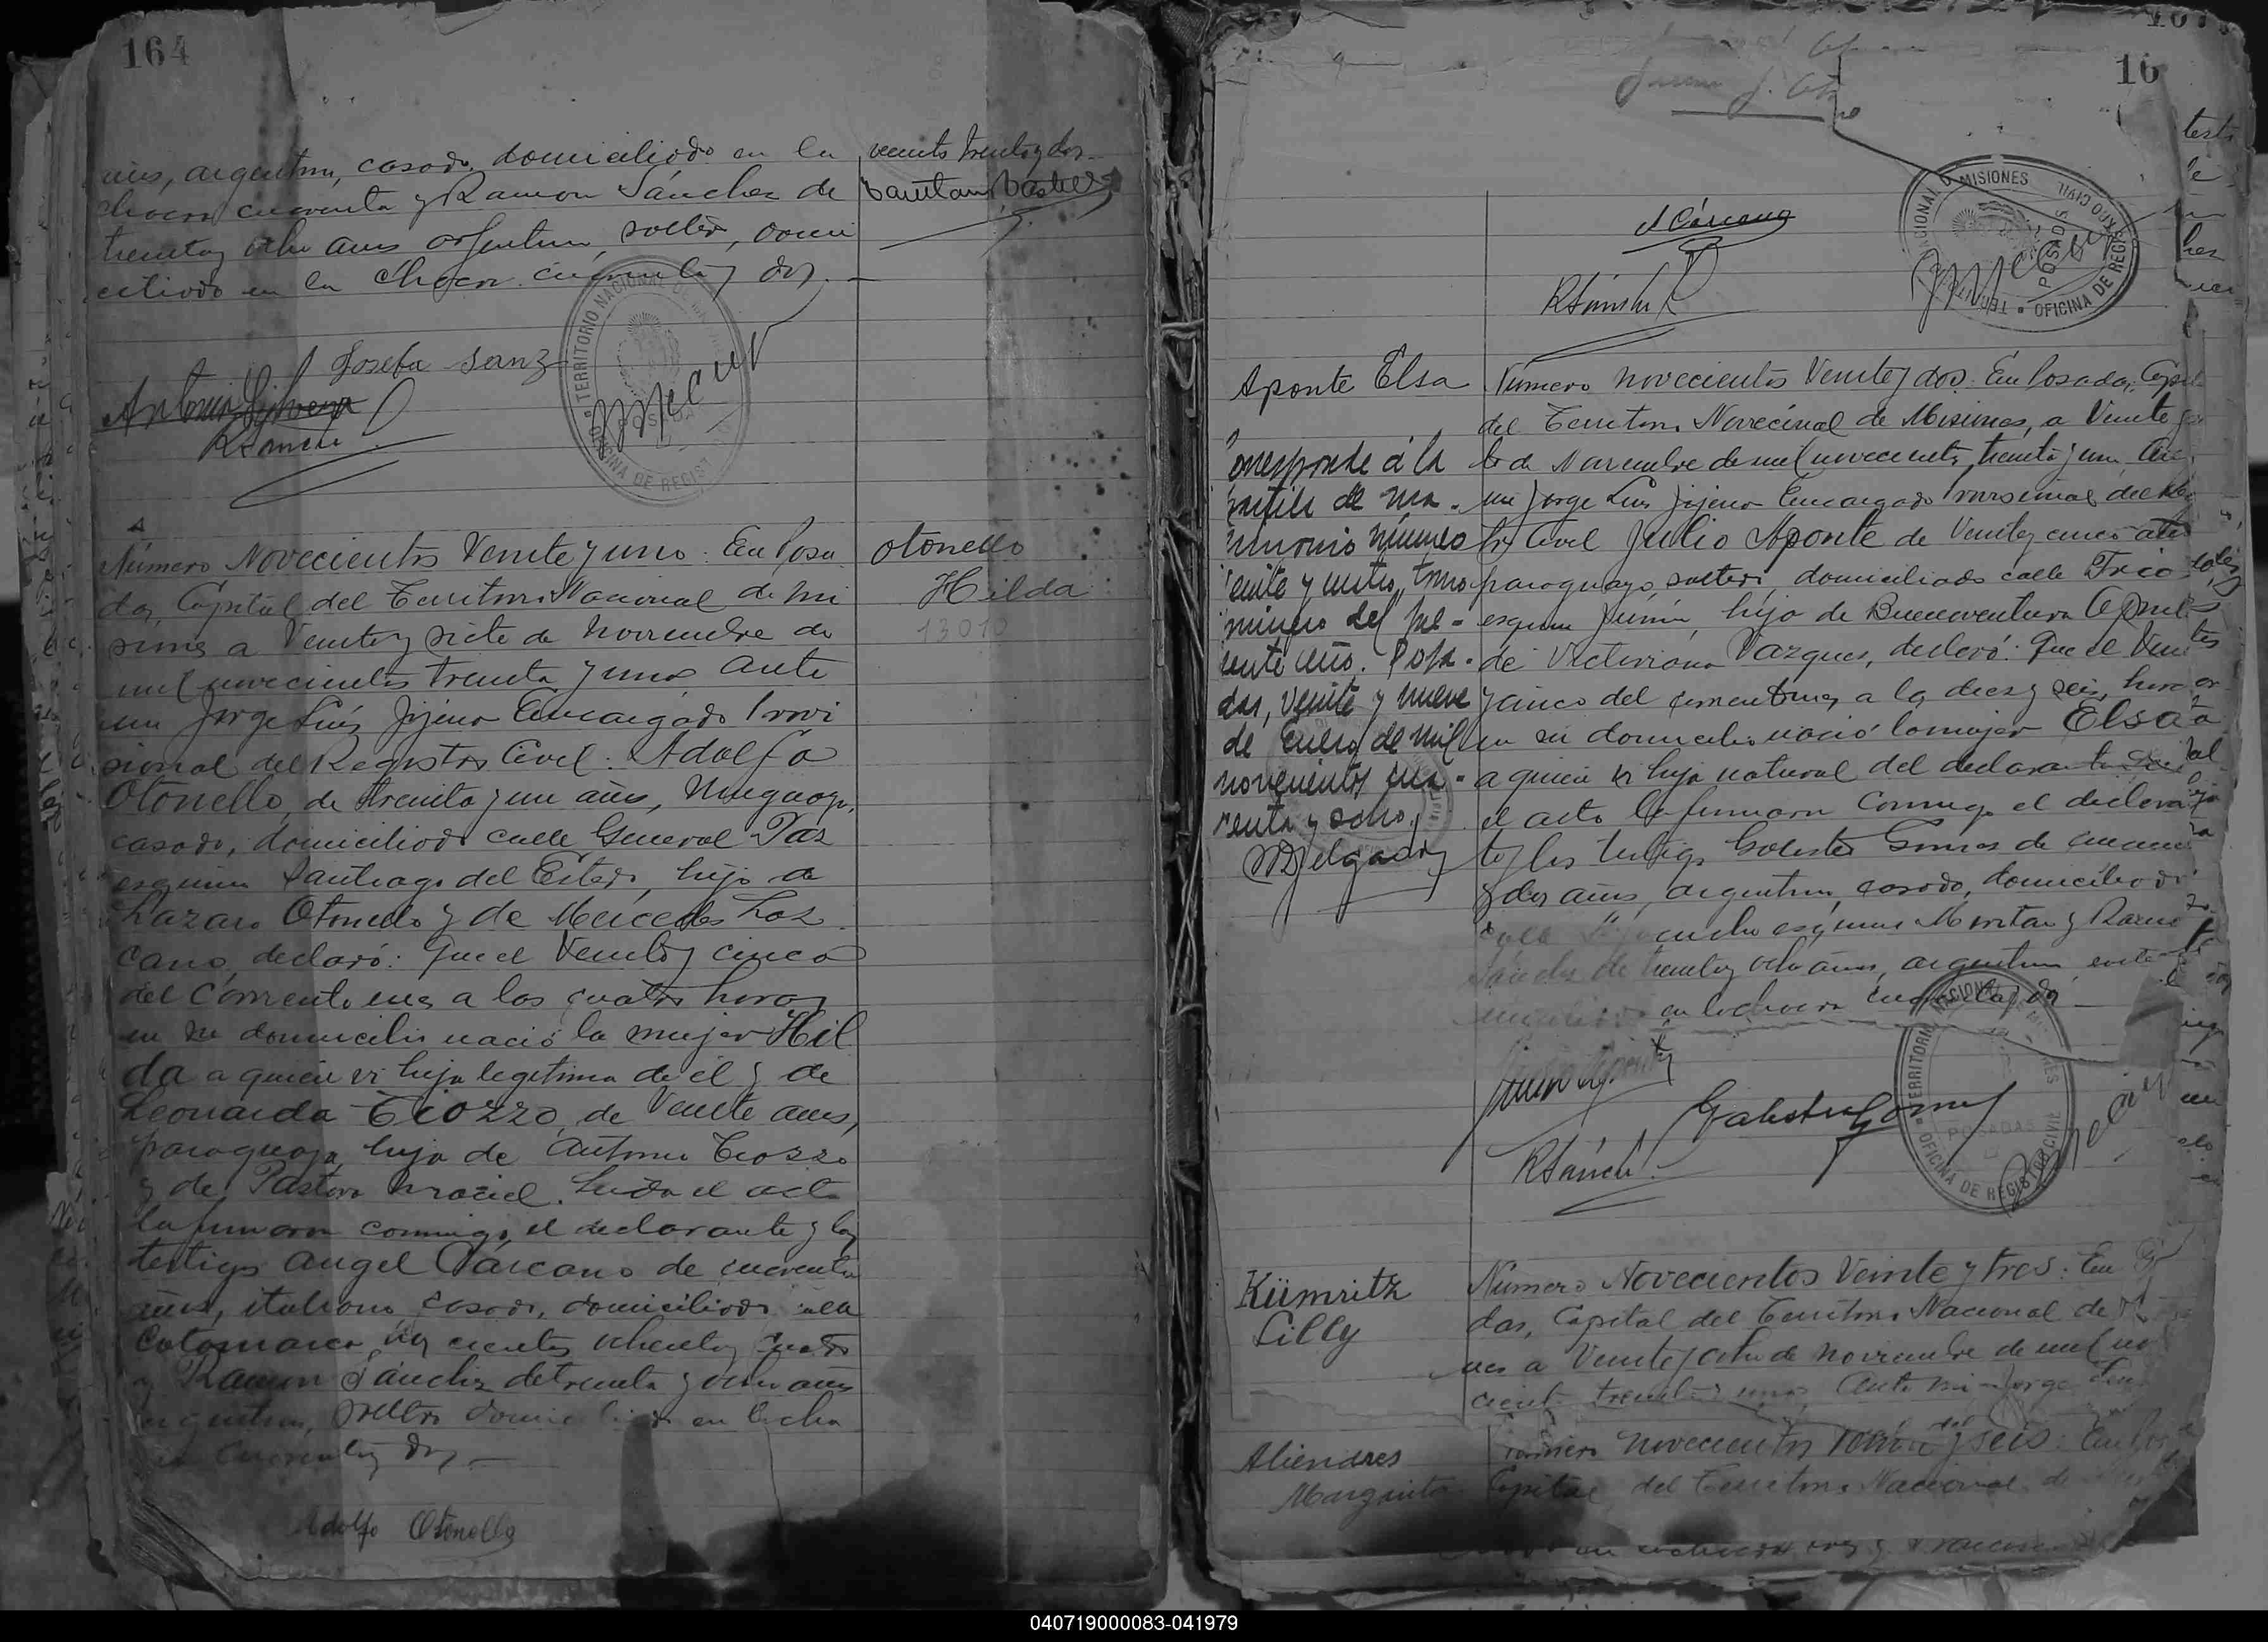 164
años, argentino, casado, domiciliado en la
chacra cuarenta y Ramon Sánchez de
treinta y ocho años argentino, soltero, domi
ciliado en la chacra cuarenta y dos.
veinte treinta y dos
Josefa Sanz
RSánchez
TERRITORIO NACIONAL DE MISIONES
POSADAS
OFICINA DE REGISTRO CIVIL
Número Novecientos Veinte y uno. En Posa
das, Capital del Territorio Nacional de Mi
siones a Veinte y siete de Noviembre de
mil novecientos treinta y uno ante
mi Jorge Luis Jijena Encargado Provi
sional del Registro Civil: Adolfo
Otonello, de treinta y un años, Uruguayo,
casado, domiciliado calle General Paz
esquina Santiago del Estero, hijo de
Lazaro Otonello y de Mercedes Laz
cano, declaró: Que el Veinte y cinco
del corriente mes a las cuatro horas
en su domicilio nació la mujer Hil
da a quien vi hija legitima de él y de
Leonarda Tiozzo, de Veinte años,
paraguaya, hija de Antonio Tiozzo
y de Pastora Maciel. Leida el acta
la firmaron conmigo, el declarante y los
testigos Angel Cárcano de cuarenta
años, italiano, casado, domiciliado calle
Catamarca cientos ochenta y cuatro
y Ramon Sánchez de treinta y ocho años
argentino, soltero domiciliado en la cha
cra cuarenta y dos.
Otonello
Hilda
13010
Adolfo Otonello
16
ACárcano
RSánchez
TERRITORIO NACIONAL DE MISIONES
POSADAS
OFICINA DE REGISTRO CIVIL
Aponte Elsa
Corresponde á la
partida de ma-
trimonio número
veinte y cuatro, tomo
primero del pre-
sente año. Posa-
das, veinte y nueve
de enero de mil
novecientos cua-
renta y ocho.
Delgado
Número Novecientos Veinte y dos: En Posadas, Capital
del Territorio Nacional de Misiones, a Veinte y
de Noviembre de mil novecientos treinta y uno Ante
mi Jorge Luis Jijena Encargado Provisional del Regis
tro Civil Julio Aponte de Veinte y cinco años
paraguayo, soltero, domiciliado calle
esquina Junín, hijo de Buenaventura Aponte
de Victoriana Vazquez, declaró: Que el Vein
y cinco del corriente mes a las diez y seis horas
en su domicilio nació la mujer Elsa
a quien vi hija natural del declarante Leida
el acta la firmaron conmigo el declaran
te y los testigos Galestro Gomez de cuarenta
y dos años, argentino, casado, domiciliado
esquina y Ramon
Sánchez de treinta y ocho años, argentino, soltero
domiciliado en la chacra cuarenta y dos
Julio Aponte
Galestro Gomez
RSánchez
TERRITORIO NACIONAL DE MISIONES
POSADAS
OFICINA DE REGISTRO CIVIL
Kümritz
Lilly
Número Novecientos Veinte y tres: En Posa
das, Capital del Territorio Nacional de Misio
nes a Veinte y ocho de noviembre de mil no
cient treinta y uno, Ante mi Jorge Luis
Aliendres
Margarita
Número novecientos y seis: En Pos
Capital del Territorio Nacional de
040719000083-041979